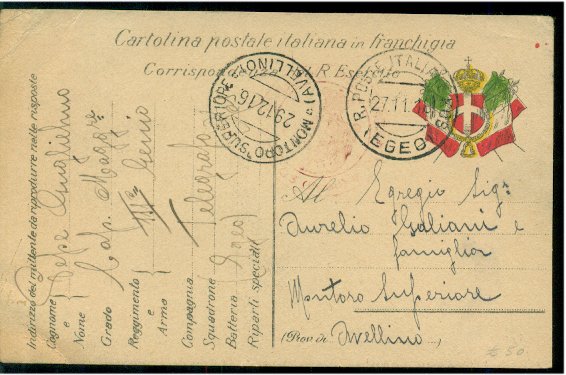 Cartolina postale italiana in franchigia
Corrispondenza del R. Esercito
MONTORO SUPERIORE
(AVELLINO)
29.12.16
R. POSTE ITALIANE
27.11.
(EGEO)
Indirizzo del mittente da riprodurre nelle risposte
Cognome e Nome Pepe Guglielmo
Grado Cap. Magg.
Reggimento e Arma III Genio
Compagnia Telegrafo
Squadrone
Batteria
Riparti speciali
Al Egregio Sigr
Aurelio Galiani e
famiglia
Montoro Superiore
(Prov. di Avellino)
£ 50